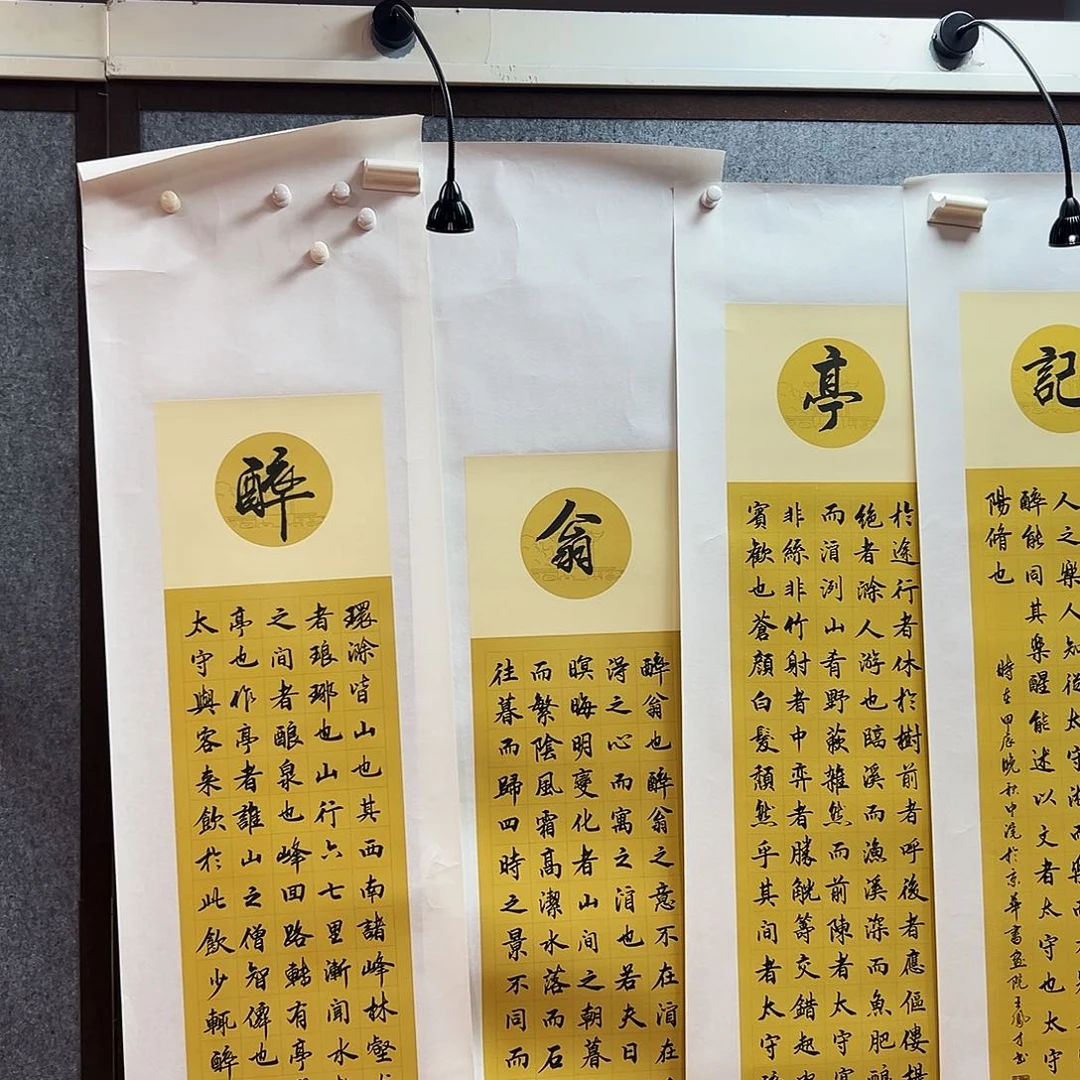 醉
環滁皆山也其西南諸峰林壑
者琅琊也山行六七里漸聞水
之間者酿泉也峰回路轉有亭
亭也作亭者誰山之僧智僊也
太守與客来飲於此飲少輒醉
翁
醉翁也醉翁之意不在酒在
淂之心而寓之酒也若夫日
暝晦明變化者山間之朝暮
而繁陰風霜髙潔水落而石
往暮而歸四時之景不同而
亭
於途行者休於樹前者呼後者應傴僂提
绝者滁人游也臨溪而漁溪深而魚肥酿
而酒洌山肴野蔌雜然而前陳者太守宴
非絲非竹射者中弈者勝觥籌交錯起
賓歡也蒼顏白髮頹然乎其間者太守
記
人之樂人知從太守游而樂而不
醉能同其樂醒能述以文者太守也太守
陽脩也
時在甲辰晚秋中浣於京華書画院王鳳才书